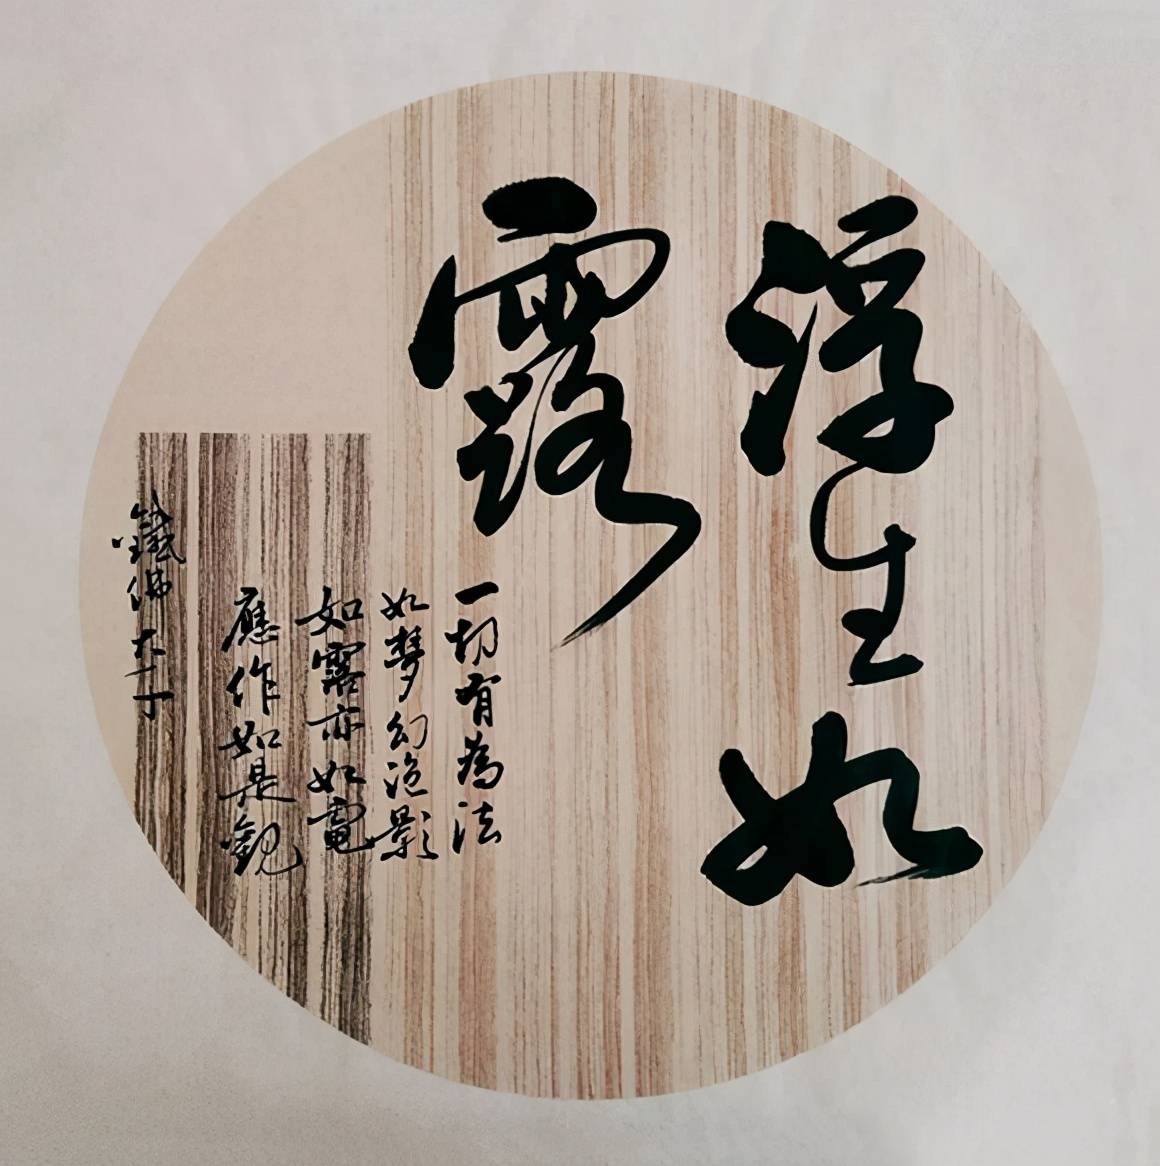 浮生如
露
一切有為法
如夢幻泡影
如露亦如電
應作如是觀
鐵佛 大丁